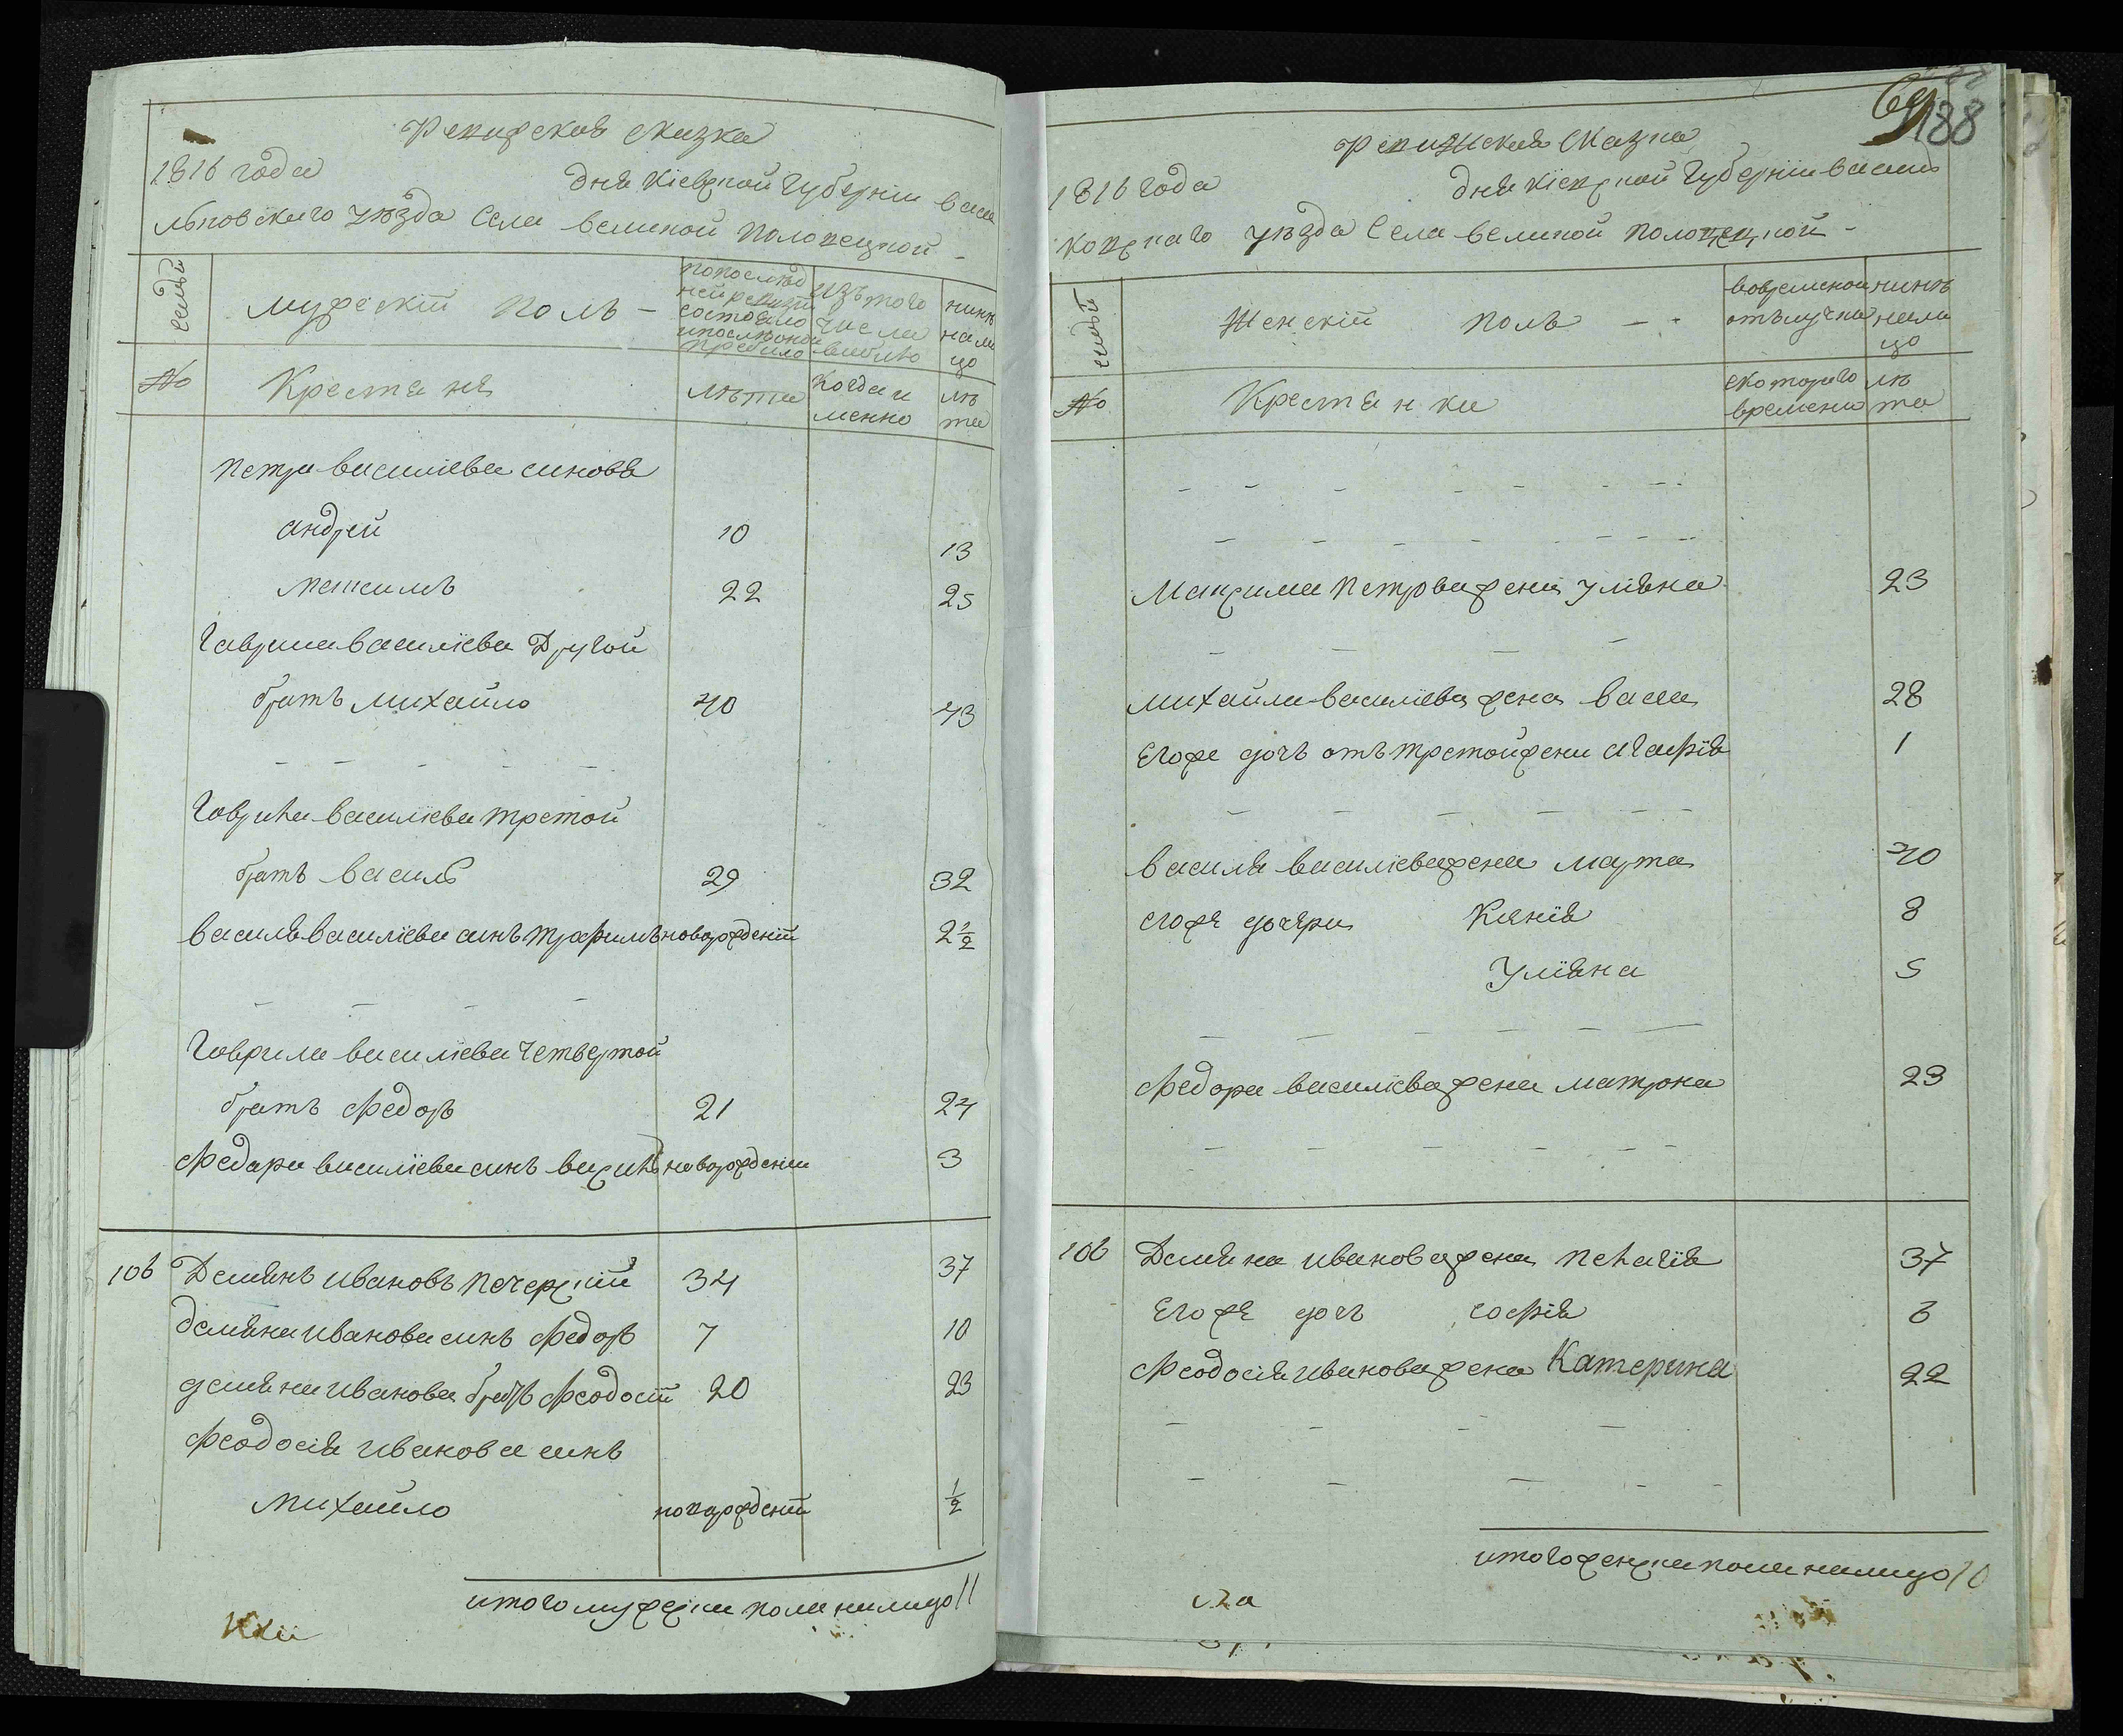 Ревизская сказка
1816 года дня Кіевской Губерніи васи
льковского уѣзда Села великой Половецкой -
Семьи
мужескій полъ -
попослѣд
ней ревизіи
состояло
ипослѣоной
прибило
изъ того
числа
вибило
нинѣ
нали
цо
№
Крестяня
лѣта
когда и
менно
лѣ
та
петра василіева синовя
андрей 10 13
максимъ 22 25
Гаврила василіева Другой
братъ михайло 40 43
Гаврила василіева третой
братъ василь 29 32
василя василіева синъ трофимъ новорожденій 2 1/2
Гаврила василіева четвертой
братъ Федоръ 21 24
Федора василіева синъ василь новорожденій 3
106 Демянъ ивановъ печерскій 34 37
демяна иванова синъ Федоръ 7 10
демяна иванова братъ Феодосій 20 23
Феодосія иванова синъ
михайло новорожденій 1/2
итого мужеска пола налицо 11
69
188
Ревизская Сказка
1816 года дня Кіевской Губерніи василь
ковскаго уѣзда Села великой половецкой -
семьи
Женскій полъ - -
вовременной
отълучки
нинѣ
нали
цо
№
Крестянки
скоторого
времени
лѣ
та
Максима петрова жена Уліяна 23
михайла василіева жена васса 28
Егоже дочь отъ третой жени агафія 1
василя василіева жена марта 40
егоже дочери Ксенія 8
Уліяна 5
Федора василіева жена матрона 23
106 Демяна иванова жена пелагія 37
Егоже дочь софія 6
Феодосія иванова жена Катерина 22
итого женска пола налицо 10